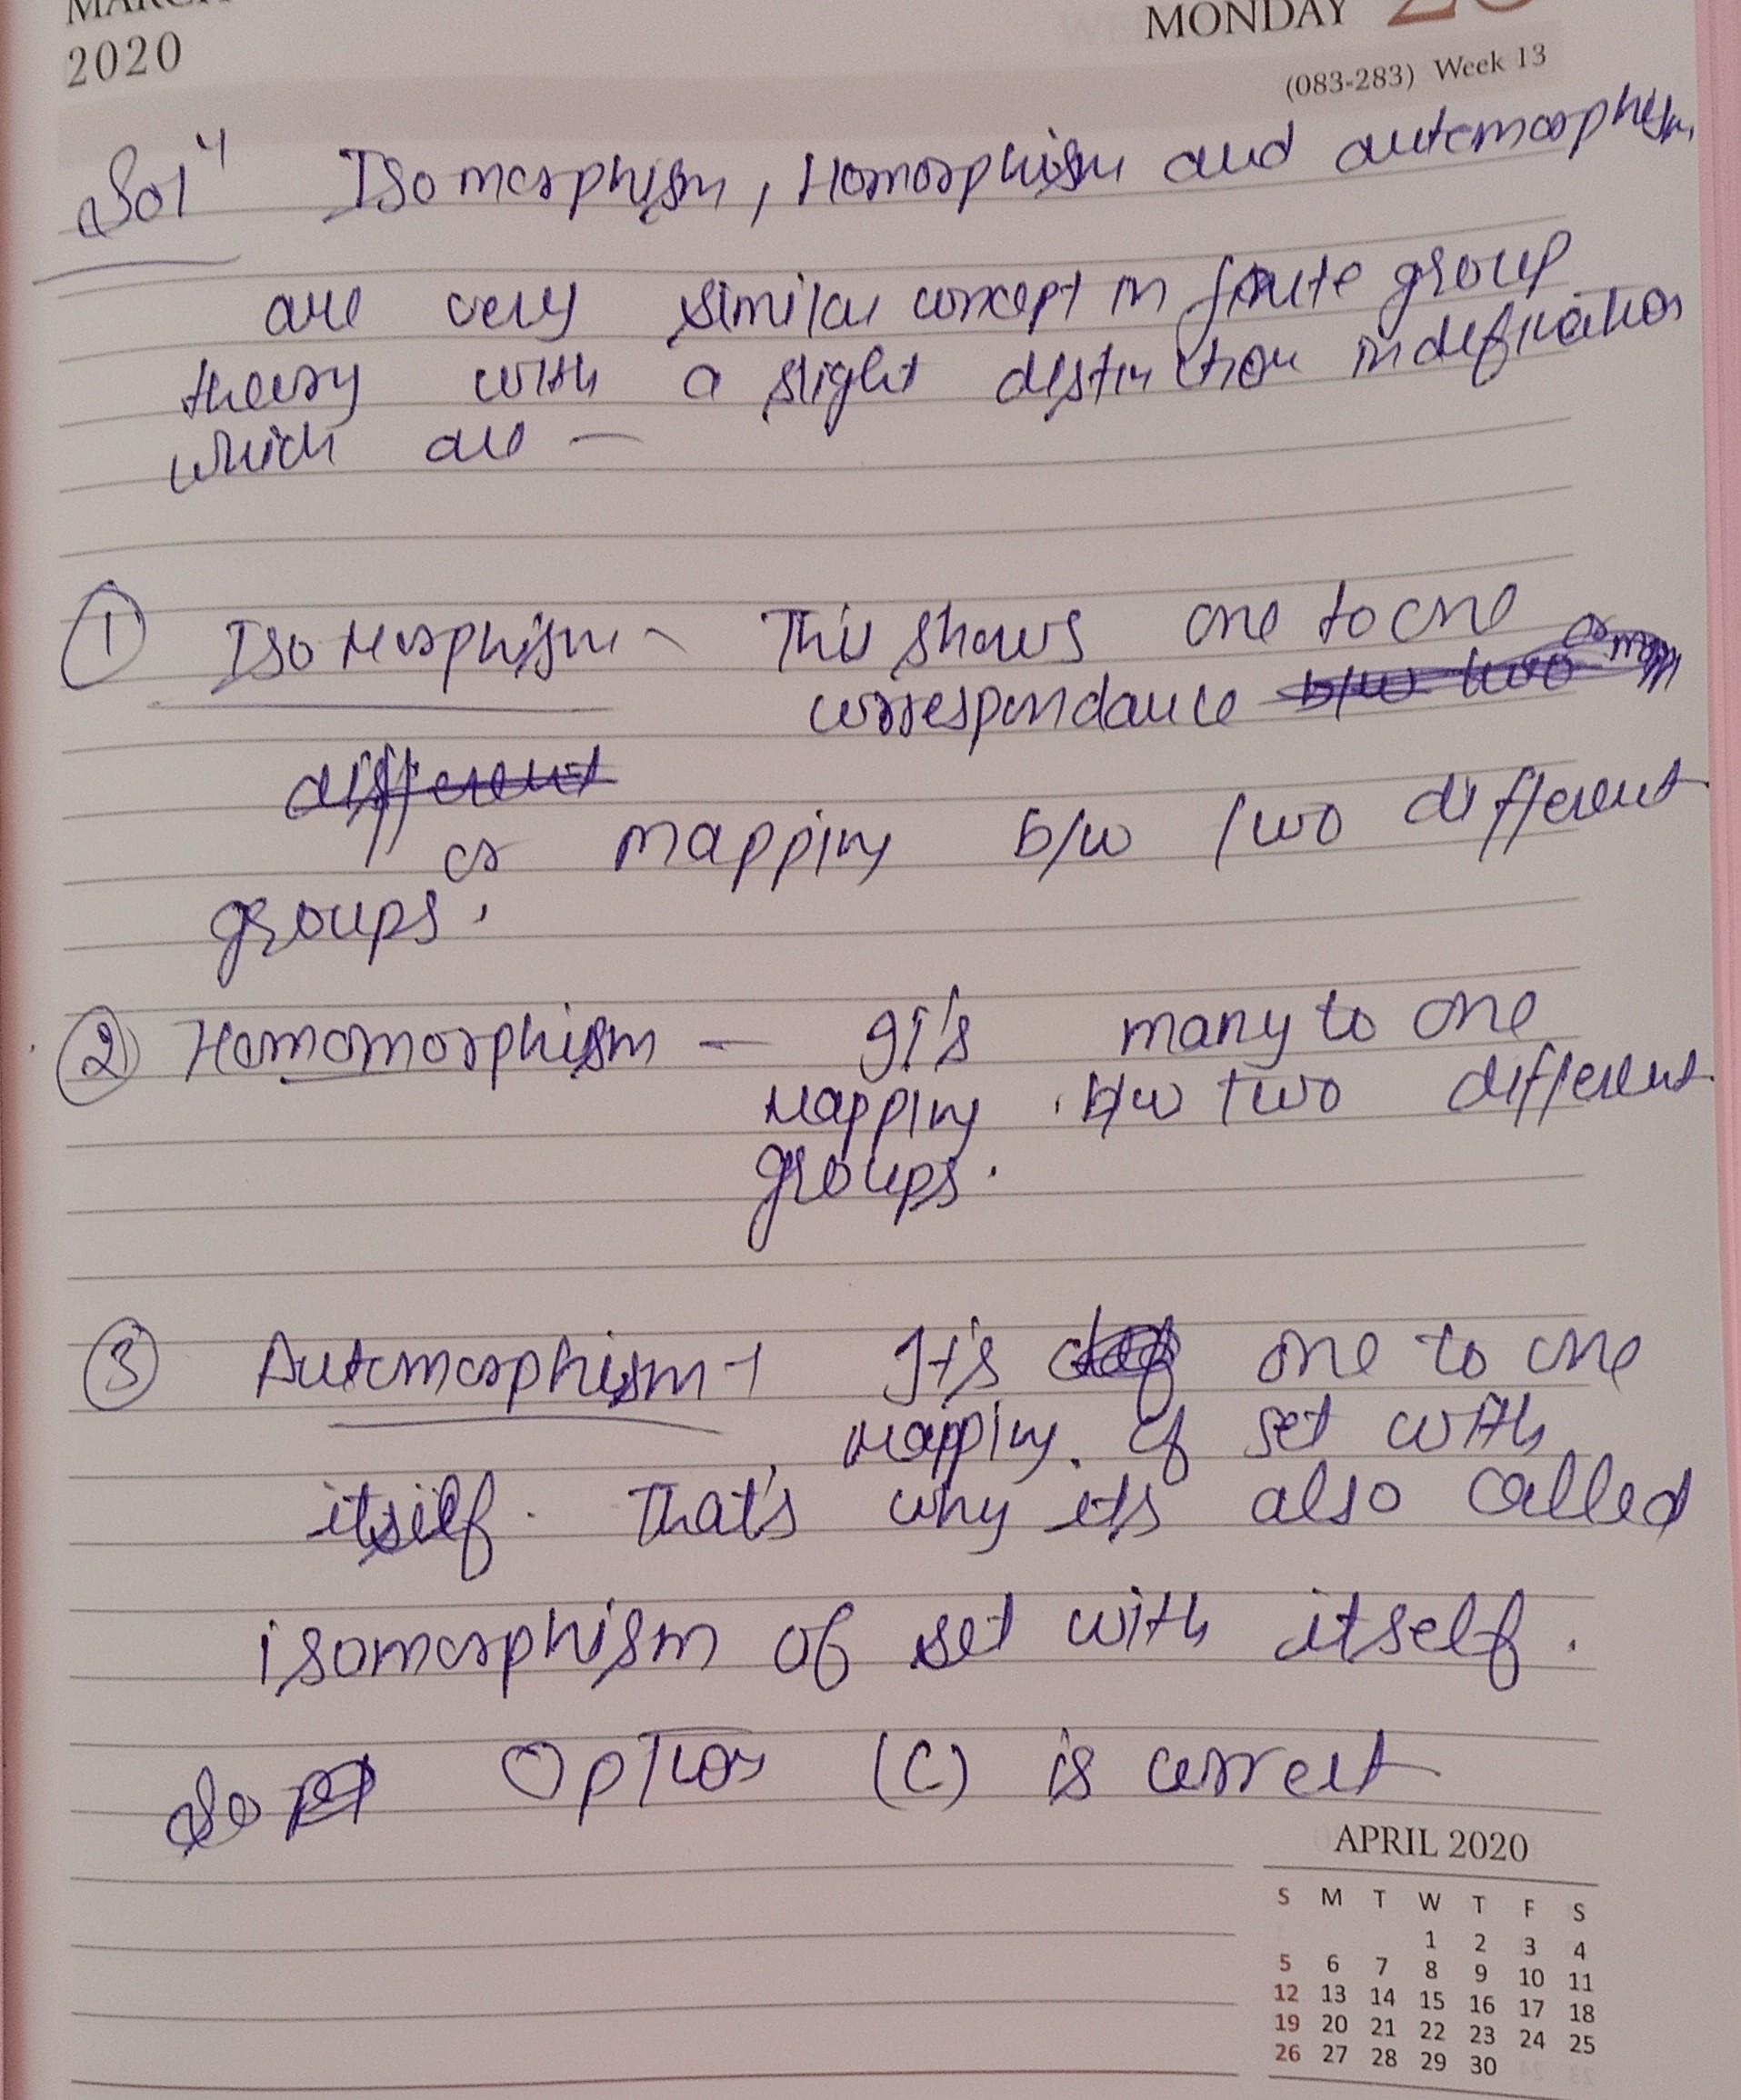 MARCH
2020
MONDAY 23
(083-283) Week 13
Solⁿ Isomorphism, Homorphism and automorphism
are very similar concept in finite group
theory with a slight distinction in defination
which are —
① Isomorphism - This shows one to one
correspondance b/w two
different
or mapping b/w two different
groups.
② Homomorphism — It's many to one
mapping b/w two different
groups.
③ Automorphism - It's one to one
mapping of set with
itself. That's why its also called
isomorphism of set with itself.
So Option (C) is correct
APRIL 2020
S M T W T F S
1 2 3 4
5 6 7 8 9 10 11
12 13 14 15 16 17 18
19 20 21 22 23 24 25
26 27 28 29 30